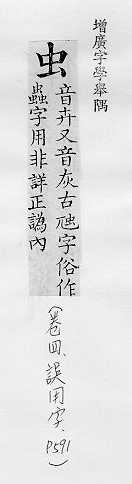 增廣字學舉隅
虫
音卉又音灰古虺字俗作
蟲字用非詳正譌內
(卷四、誤用字、P591)